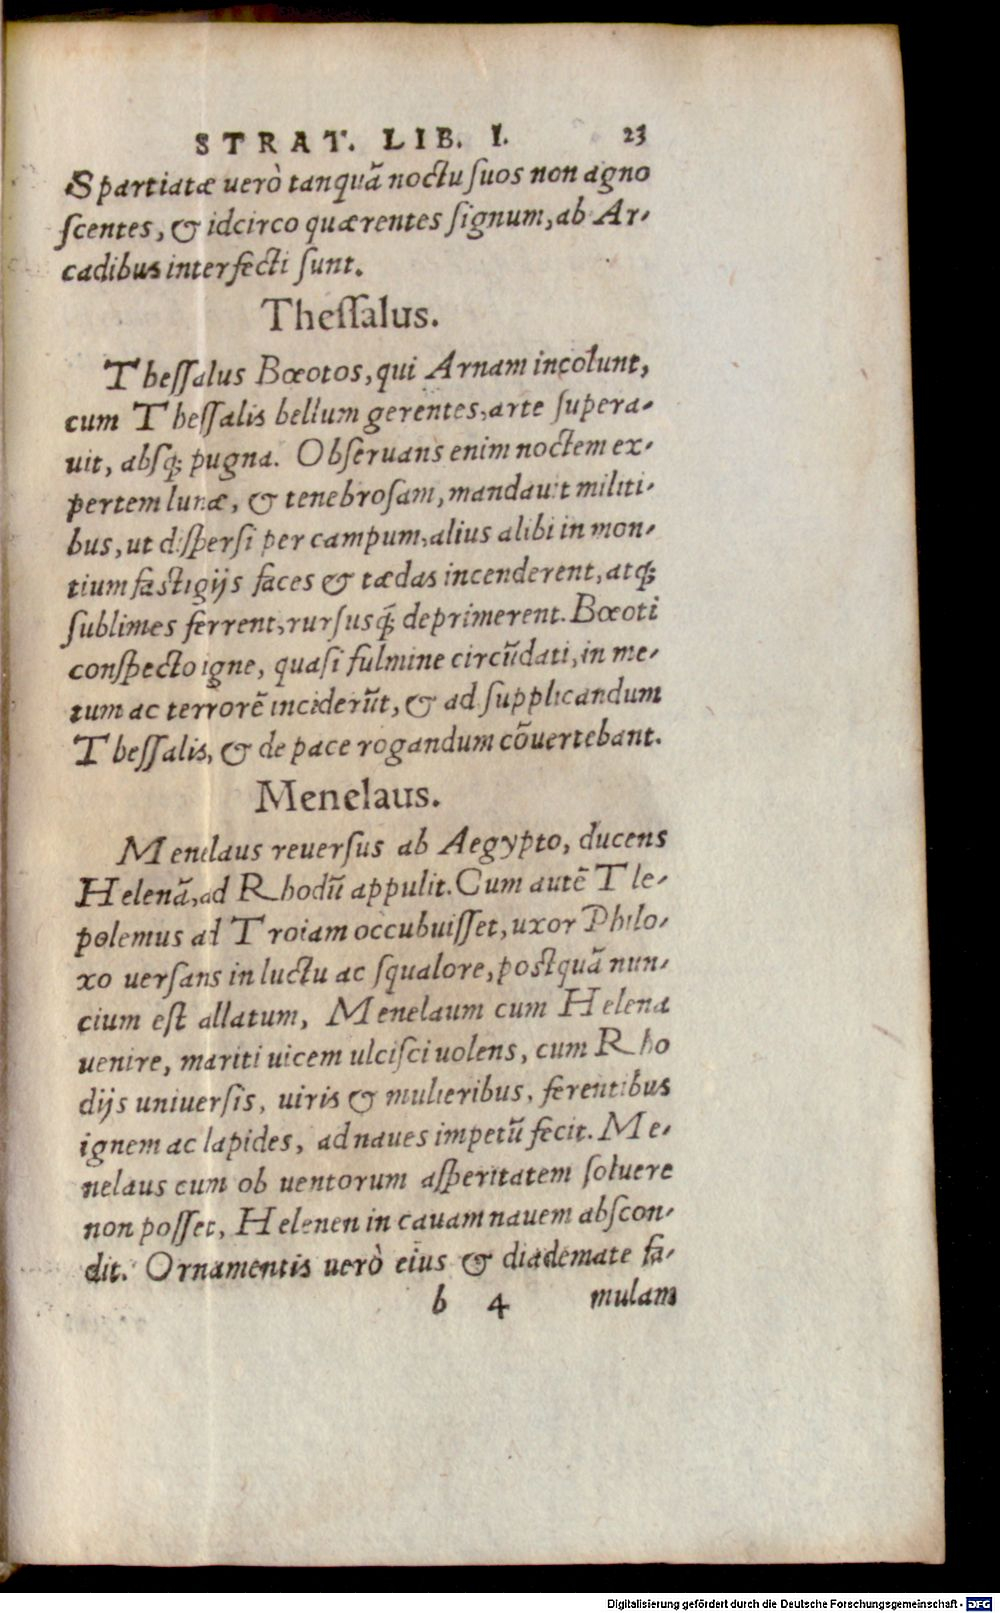 STRAT. LIB. I. 23
Spartiatæ uerò tanquã noctu suos non agno
scentes, & idcirco quærentes signum, ab Ar-
cadibus interfecti sunt.
Thessalus.
Thessalus Bœotos, qui Arnam incolunt,
cum Thessalis bellum gerentes, arte supera-
uit, absq; pugna. Obseruans enim noctem ex-
pertem lunæ, & tenebrosam, mandauit militi-
bus, ut dispersi per campum, alius alibi in mon-
tium fastigijs faces & tædas incenderent, atq;
sublimes ferrent, rursusq́; deprimerent. Bœoti
conspecto igne, quasi fulmine circũdati, in me-
tum ac terrorẽ inciderũt, & ad supplicandum
Thessalis, & de pace rogandum cõuertebant.
Menelaus.
Menelaus reuersus ab Aegypto, ducens
Helenã, ad Rhodũ appulit. Cum autẽ Tle-
polemus ad Troiam occubuisset, uxor Philo-
xo uersans in luctu ac squalore, postquã nun-
cium est allatum, Menelaum cum Helena
uenire, mariti uicem ulcisci uolens, cum Rho
dijs uniuersis, uiris & mulieribus, ferentibus
ignem ac lapides, ad naues impetũ fecit. Me-
nelaus cum ob uentorum asperitatem soluere
non posset, Helenen in cauam nauem abscon-
dit. Ornamentis uerò eius & diademate fa-
b 4 mulam
Digitalisierung gefördert durch die Deutsche Forschungsgemeinschaft - DFG